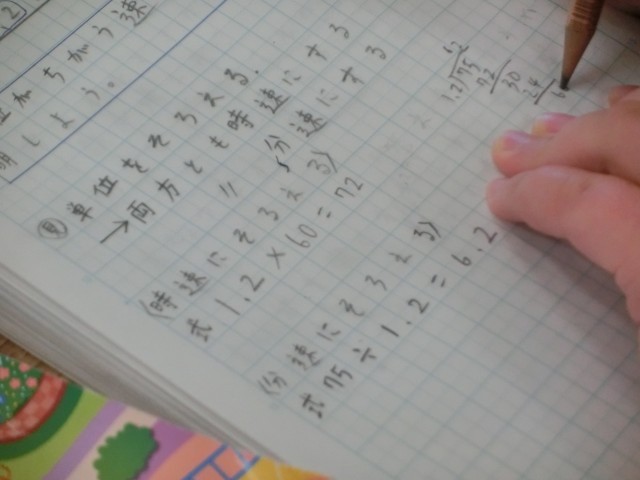 2
位がちがう速
明しよう。
単位をそろえる。
→両方とも時速にする
〃 分速にする
(時速にそろえる)
式 1.2×60=72
(分速にそろえる)
式 75÷1.2=6.2
62
1.2)75
72
30
24
6